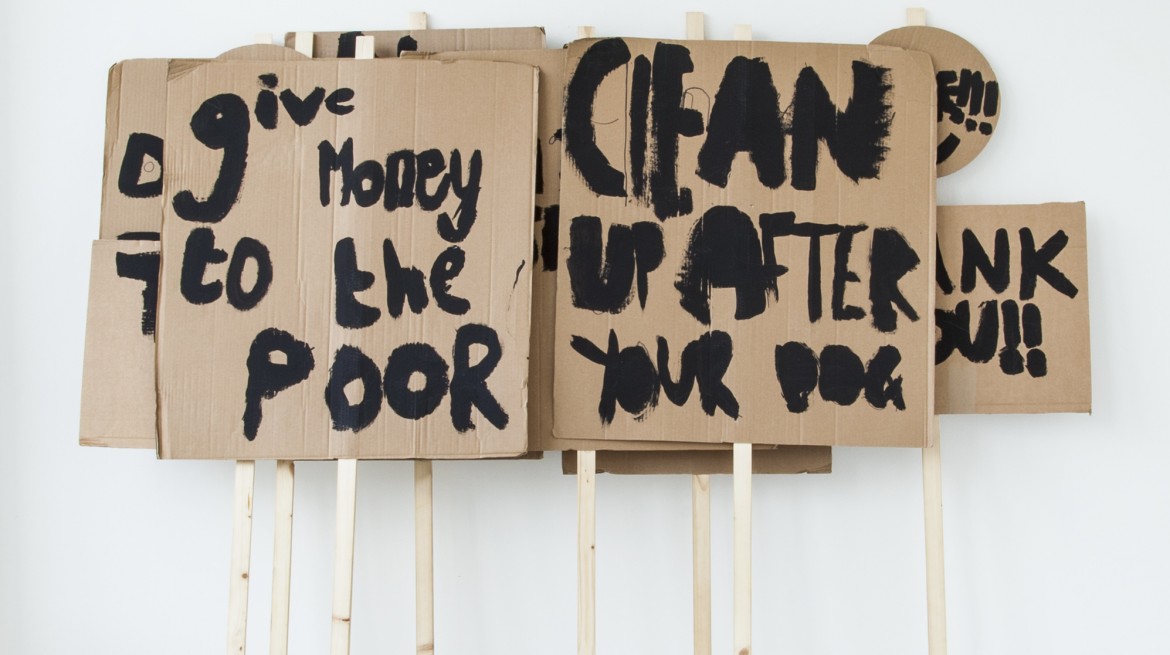 give
Money
to the
POOR
CLEAN
UP AFTER
YOUR DOG
!!!
ANK
OU!!